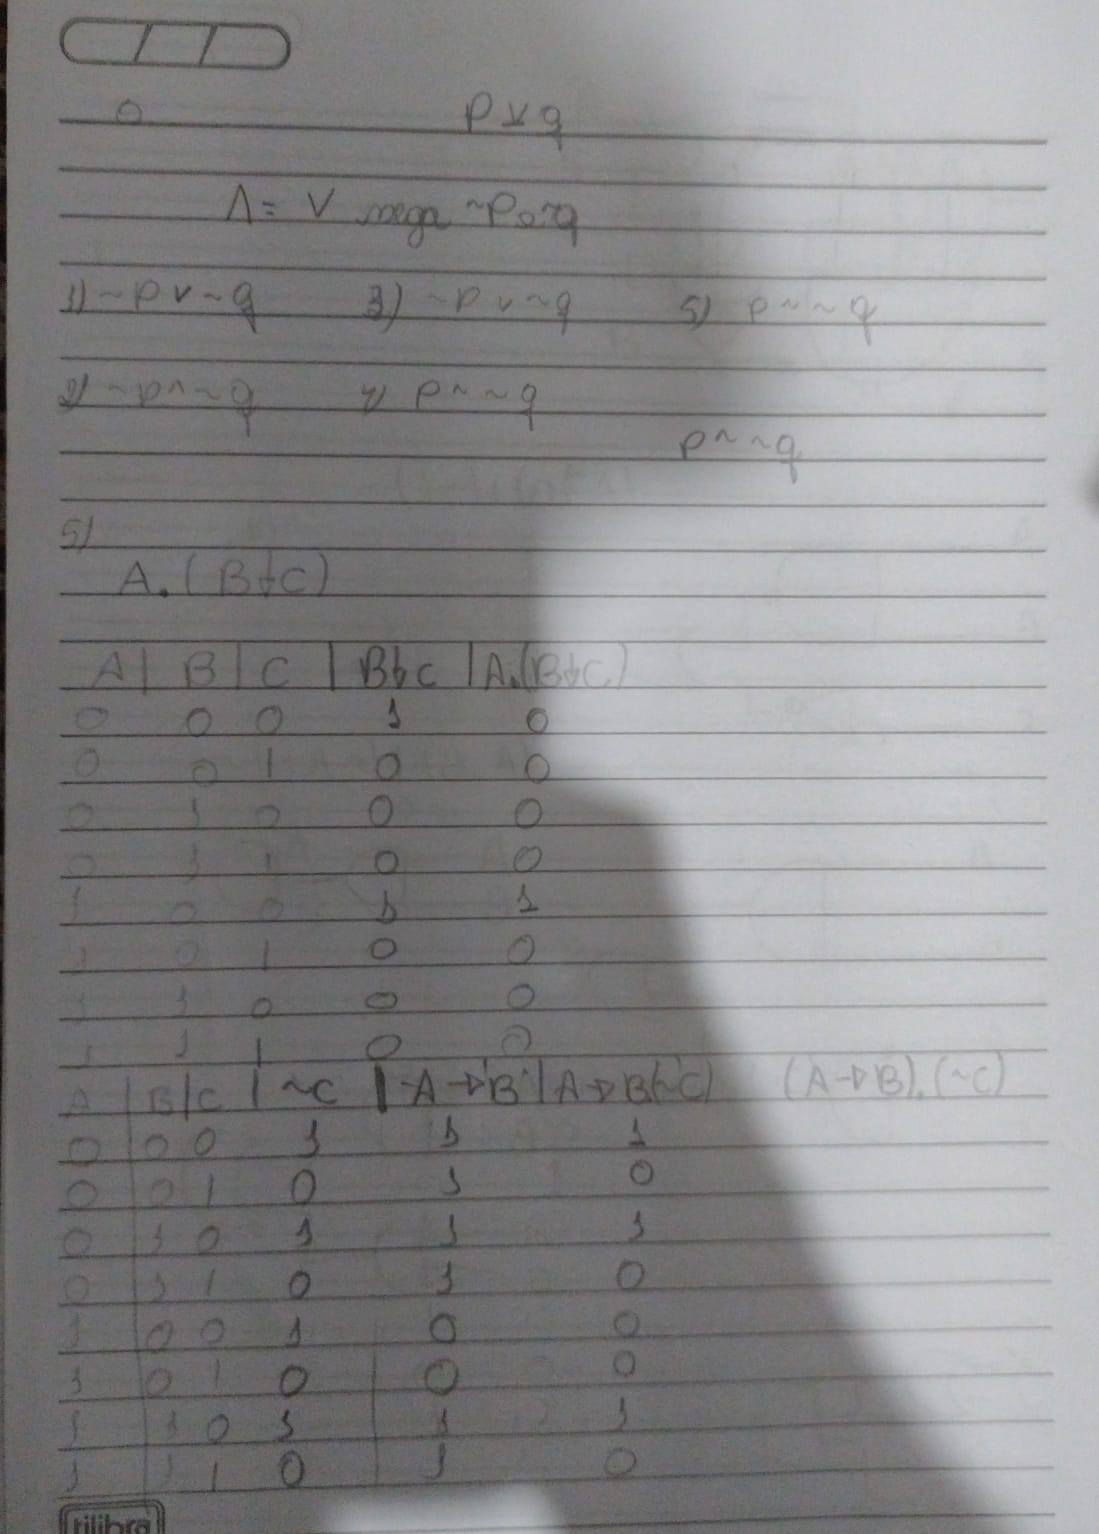 p ⊻ q
Λ = V nega ~p o ~q
1) ~p v ~q 3) ~p v ~q 5) p ^ ~q
2) ~p ^ ~q 4) p ^ ~q
p ^ ~q
5)
A.(B↓C)
A | B | C | B↓C | A.(B↓C)
0 0 0 1 0
0 0 1 0 0
0 1 0 0 0
0 1 1 0 0
1 0 0 1 1
1 0 1 0 0
1 1 0 0 0
1 1 1 0 0
A | B | C | ~C | A → B | A → B(~C) (A → B).(~C)
0 0 0 1 1 1
0 0 1 0 1 0
0 1 0 1 1 1
0 1 1 0 1 0
1 0 0 1 0 0
1 0 1 0 0 0
1 1 0 1 1 1
1 1 1 0 1 0
tilibra